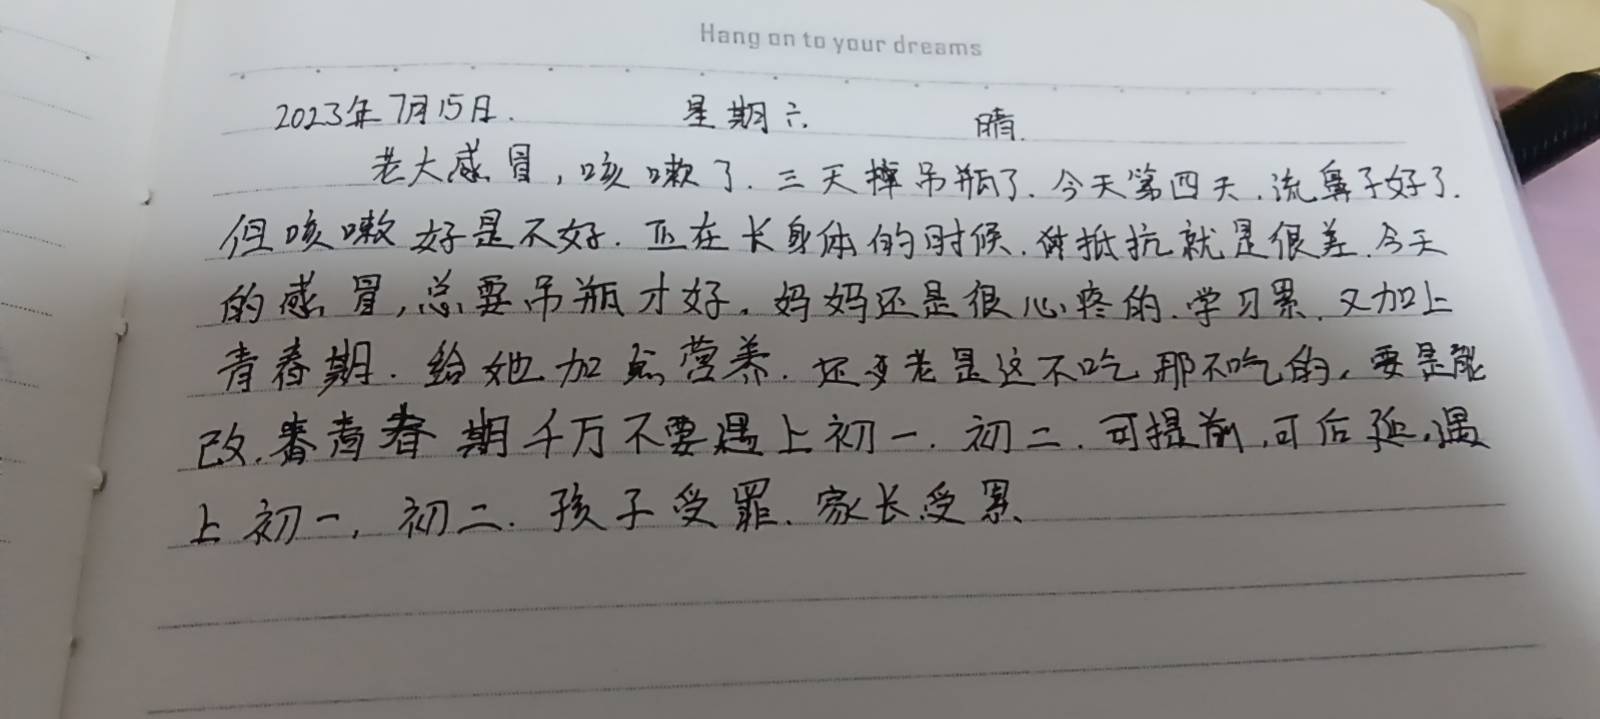 Hang on to your dreams
2023年7月15日. 星期六 晴.
老大感冒,咳嗽了.三天掉吊瓶了.今天第四天.流鼻子好了.
但咳嗽好是不好.正在长身体的时候.身体抵抗就是很差.今天
的感冒,总要吊瓶才好。妈妈还是很心疼的.学习累.又加上
青春期.给她加点营养.还老是这不吃那不吃的,要是能
改.青春期千万不要遇上初一.初二.可提前,可后延,遇
上初一,初二.孩子受罪、家长受累、